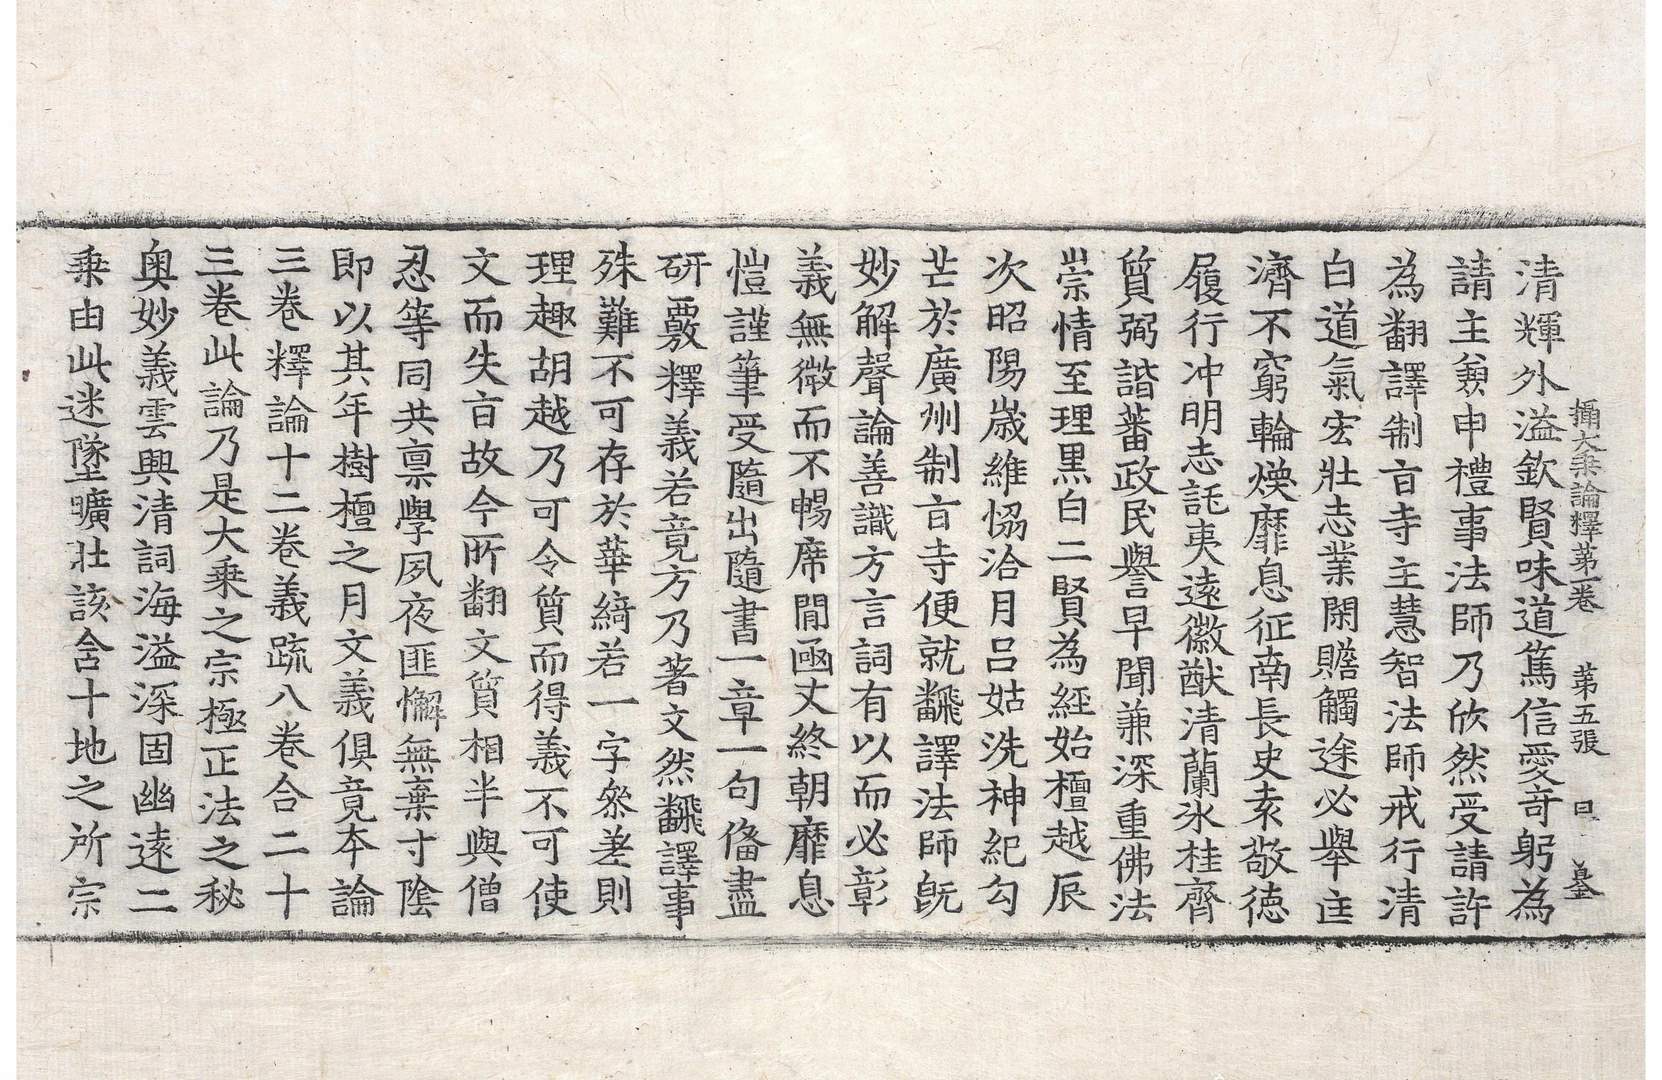 攝大乘論釋第一卷 第五張 曰 墓
清輝外溢欽賢味道篤信愛奇躬為
請主兼申禮事法師乃欣然受請許
為翻譯制旨寺主慧智法師戒行清
白道氣宏壯志業閑贍觸途必舉匡
濟不窮輪煥靡息征南長史袁敬德
履行冲明志託夷遠徽猷清蘭氷桂齊
質弼諧蕃政民譽早聞兼深重佛法
崇情至理黒白二賢為經始檀越辰
次昭陽歳維協洽月呂姑洗神紀勾
芒於廣州制旨寺便就飜譯法師旣
妙解聲論善識方言詞有以而必彰
義無微而不暢席閒函丈終朝靡息
愷謹筆受隨出隨書一章一句俻盡
研覈釋義若竟方乃著文然飜譯事
殊難不可存於華綺若一字叅差則
理趣胡越乃可令質而得義不可使
文而失旨故今所翻文質相半與僧
忍等同共禀學夙夜匪懈無棄寸陰
即以其年樹檀之月文義俱竟本論
三卷釋論十二卷義疏八卷合二十
三卷此論乃是大乘之宗極正法之秘
奥妙義雲興清詞海溢深固幽遠二
乗由此迷墜曠壯該含十地之所宗